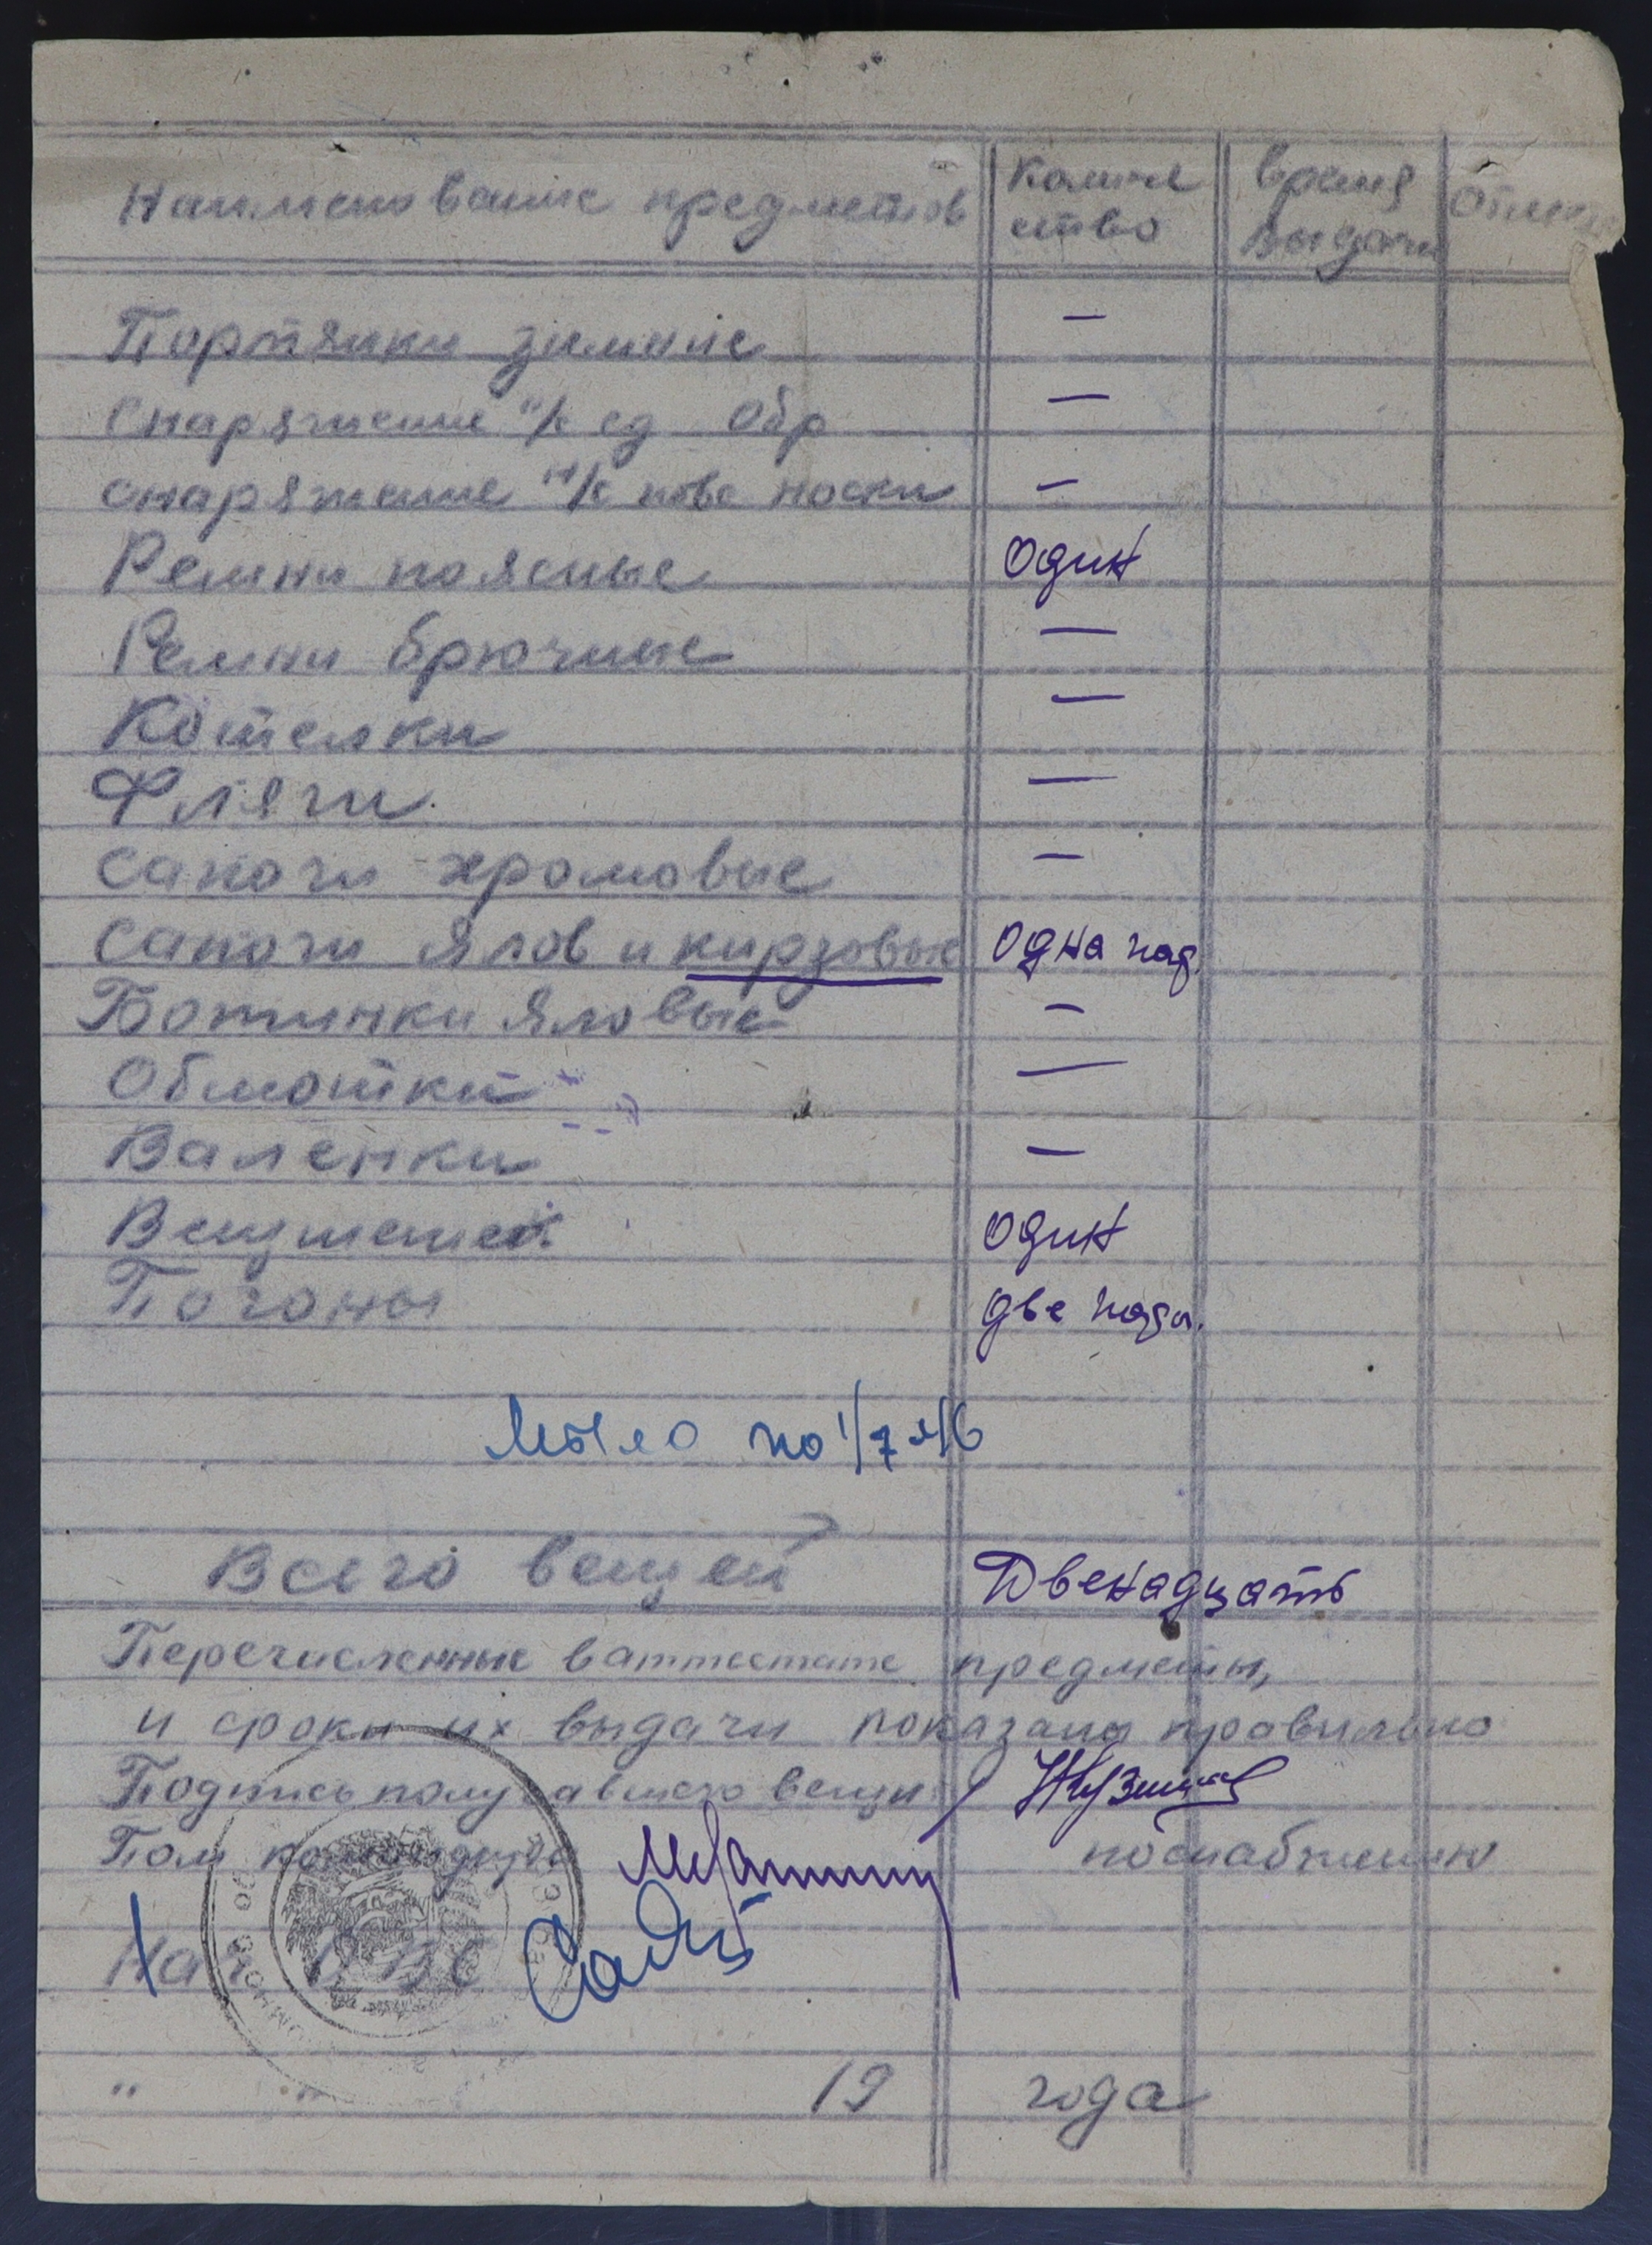 Наименование предметов Количе ство Время выдачи Отмет
Портянки зимние —
Снаряжение н/к ед обр —
снаряжение н/к повс носки —
Ремни поясные один
Ремни брючные —
Котелки —
Фляги —
Сапоги хромовые —
Сапоги ялов и кирзовые одна пар.
Ботинки яловые —
Обмотки —
Валенки —
Вещмешок один
Погоны две пары.
Мыло по 1/7
Всего вещей Двенадцать
Перечисленные в аттестате предметы,
и сроки их выдачи показаны правильно
Подпись получавшего вещи
Пом командира по снабжению
Нач
" " 19 года